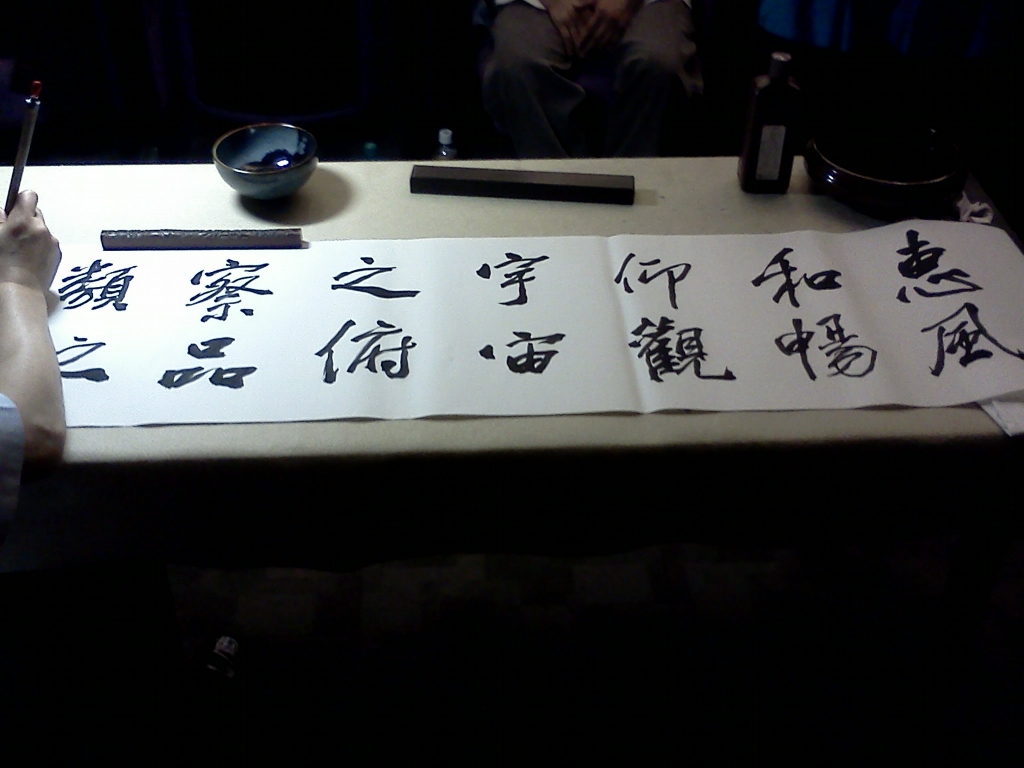 惠風
和暢
仰觀
宇宙
之俯
察品
類之